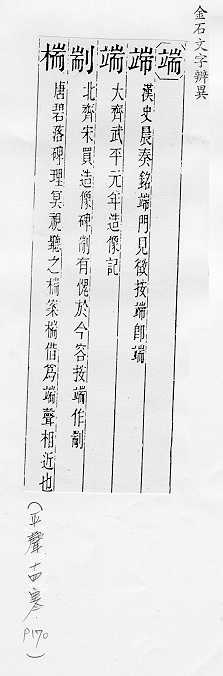 金石文字辨異
端
漢史晨奏銘端門見徵按端即端
端 大齊武平元年造像記
剬 北齊宋買造像碑剬有愧於今容按端作剬
椯 唐碧落碑理冥視聽之椯篆椯借為端聲相近也
(平聲 十四寒 P170)